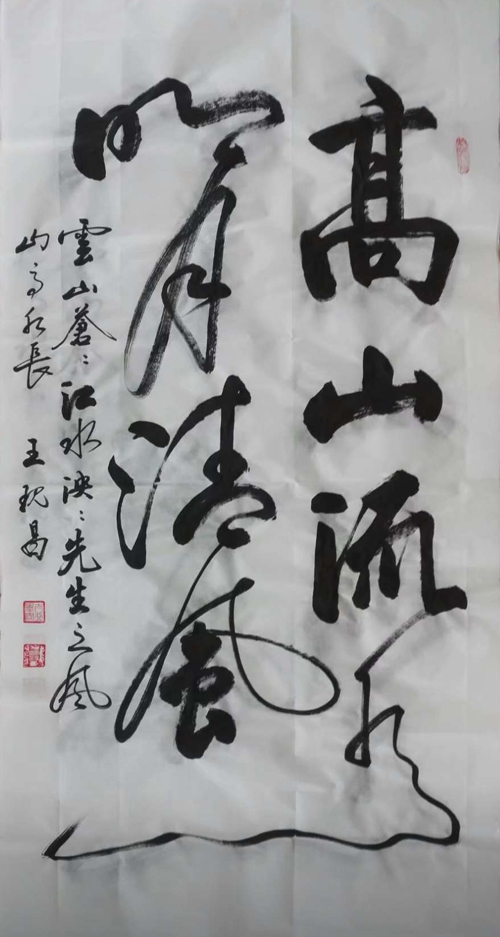 高山流水
明月清風
雲山蒼〻江水泱〻先生之風
山高水長 王 昌